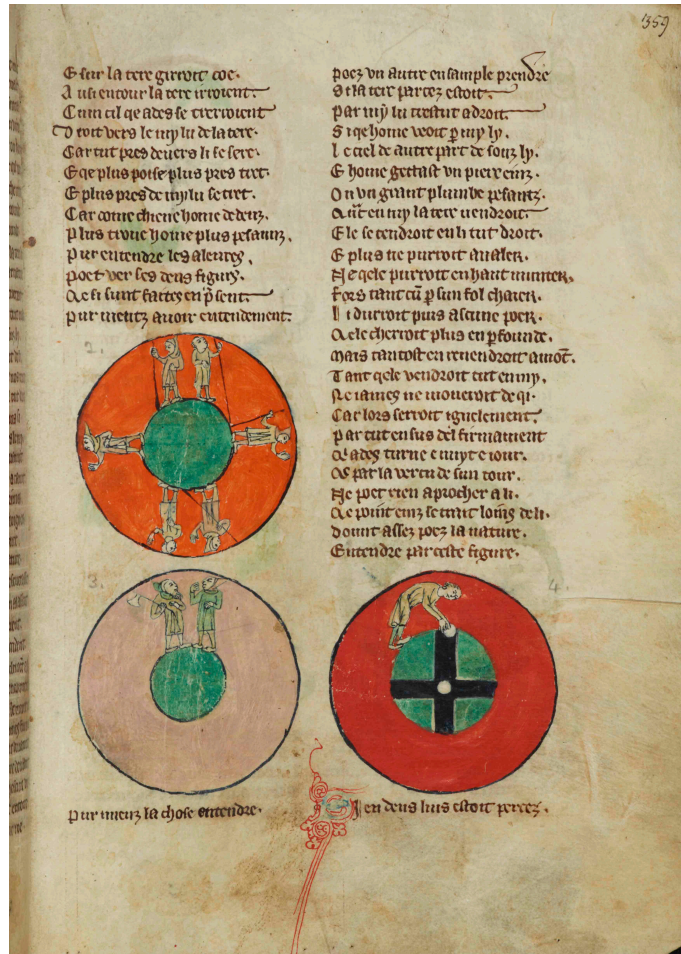 359
E sur la tere girroit coe.
Ausi entour la tere irroient.
Cum cil qe ades se treroient
Droit vers le my lu de la tere.
Car tut pres devers li se sere.
E qe plus poise plus pres tret.
E plus pres de my lu se tret.
Car come chiene home dedenz.
Plus trove home plus pesantz.
Pur entendre les alentes,
Poet ver ses deus figurs.
Qe si sunt faites en p̄sent.
Pur mieutz avoir entendement.
2.
3.
Pur mieuz la chose entendre.
Poez un autre ensample prendre
Si la tere parcez estoit.
Par my lu trestut a droit.
Si qe home veoit p̱ my ly.
Le ciel de autre part de souz ly.
E home gettast un piere einz.
On un grant plumbe pesantz.
Qn̄t en my la tere vendroit.
Ele se tendroit en li tut droit.
E plus ne purroit avaler.
Ne qele purroit en haut munter.
Fors tant cū p̱ sun fol chaier.
Li durroit puis ascune poer.
Qele cherroit plus en p̱founde.
Mais tantost en revendroit amōt.
Tant qele vendroit tut en my.
Ne james ne moveroit de qi.
Car lors serroit iguelement.
Par tut en sus del firmament
Qe ades turne e nuyt e jour.
Qe par la vertu de sun tour.
Ne poet rien aprocher a li.
Qe point einz se trait loing de li.
Dount assez poez la nature.
Entendre par ceste figure.
4.
en deus luis estoit percez.